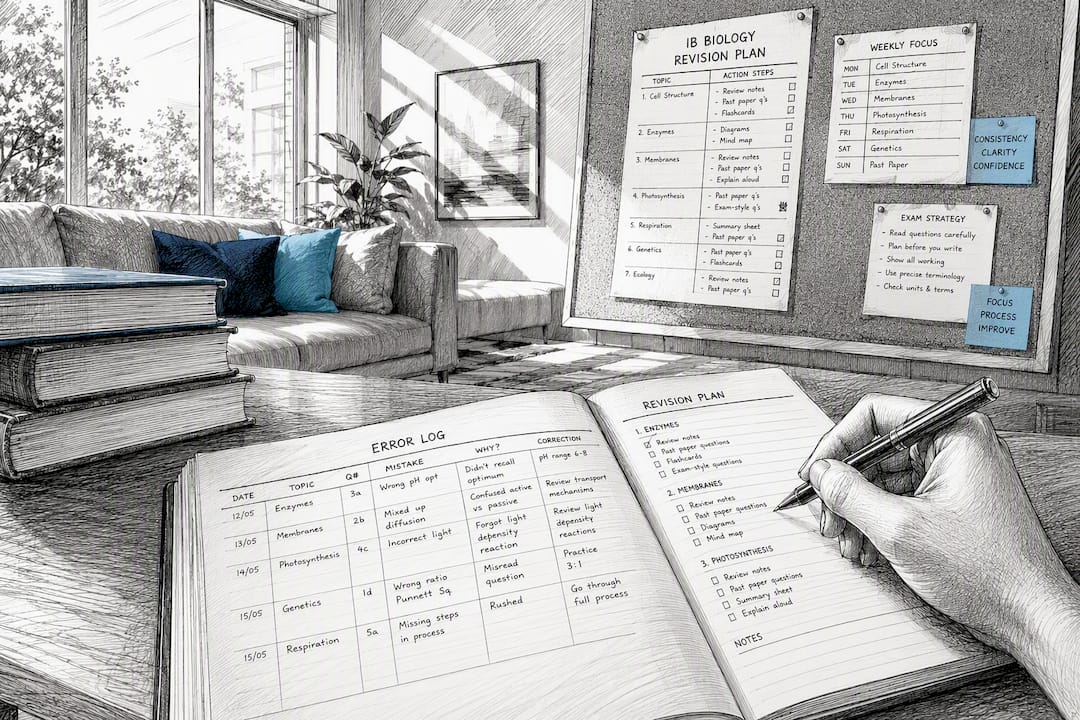 IB BIOLOGY
REVISION PLAN
TOPIC ACTION STEPS
1. Cell Structure - Review notes
- Past paper q's
- Flashcards
2. Enzymes - Diagrams
- Mind map
3. Membranes - Review notes
- Past paper q's
- Explain aloud
4. Photosynthesis - Past paper q's
- Exam-style q's
5. Respiration - Summary sheet
- Past paper q's
6. Genetics - Past paper q's
- Flashcards
7. Ecology - Review notes
- Past paper q's
WEEKLY FOCUS
MON Cell Structure
TUE Enzymes
WED Membranes
THU Photosynthesis
FRI Respiration
SAT Genetics
SUN Past Paper
CONSISTENCY
CLARITY
CONFIDENCE
EXAM STRATEGY
- Read questions carefully
- Plan before you write
- Show all working
- Use precise terminology
- Check units & terms
FOCUS
PROCESS
IMPROVE
ERROR LOG
DATE TOPIC Q# MISTAKE WHY? CORRECTION
12/05 Enzymes 3a Wrong pH opt Didn't recall pH range 6-8
optimum
13/05 Membranes 2b Mixed up Confused active Review transport
diffusion vs passive mechanisms
14/05 Photosynthesis 4c Incorrect light Forgot light Review light
depensity depensity
reaction reactions
15/05 Genetics 1d Wrong ratio Misread Practice
Punnett Sq question 3:1
15/05 Respiration 5a Missing steps Rushed Go through
in process full process
REVISION PLAN
1. ENZYMES
Review notes
Past paper questions
Flashcards
Exam-style questions
2. MEMBRANES
Review notes
Past paper questions
Diagrams
Mind map
3. PHOTOSYNTHESIS
Review notes
Past paper questions
Summary sheet
Explain aloud
NOTES